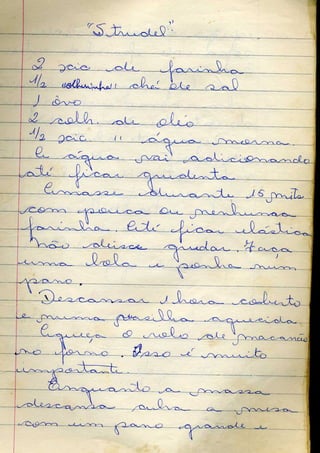 "Strudel"
2 xic de farinha
1/2 colherinha chá de sal
1 ovo
2 colh. de oleo
1/2 xic " água morna.
A água vai adicionando
até ficar grudenta
Amasse durante 15 mits
com pouca ou nenhuma
farinha. Até ficar elástica
Não deixe grudar. Faça
uma bola e ponha num
pano.
Descansar 1 hora coberto
e numa vasilha aquecida.
Aqueça o rolo de macarrão
no forno. Isso é muito
importante.
Enquanto a massa
descansa cubra a mesa
com um pano grande e